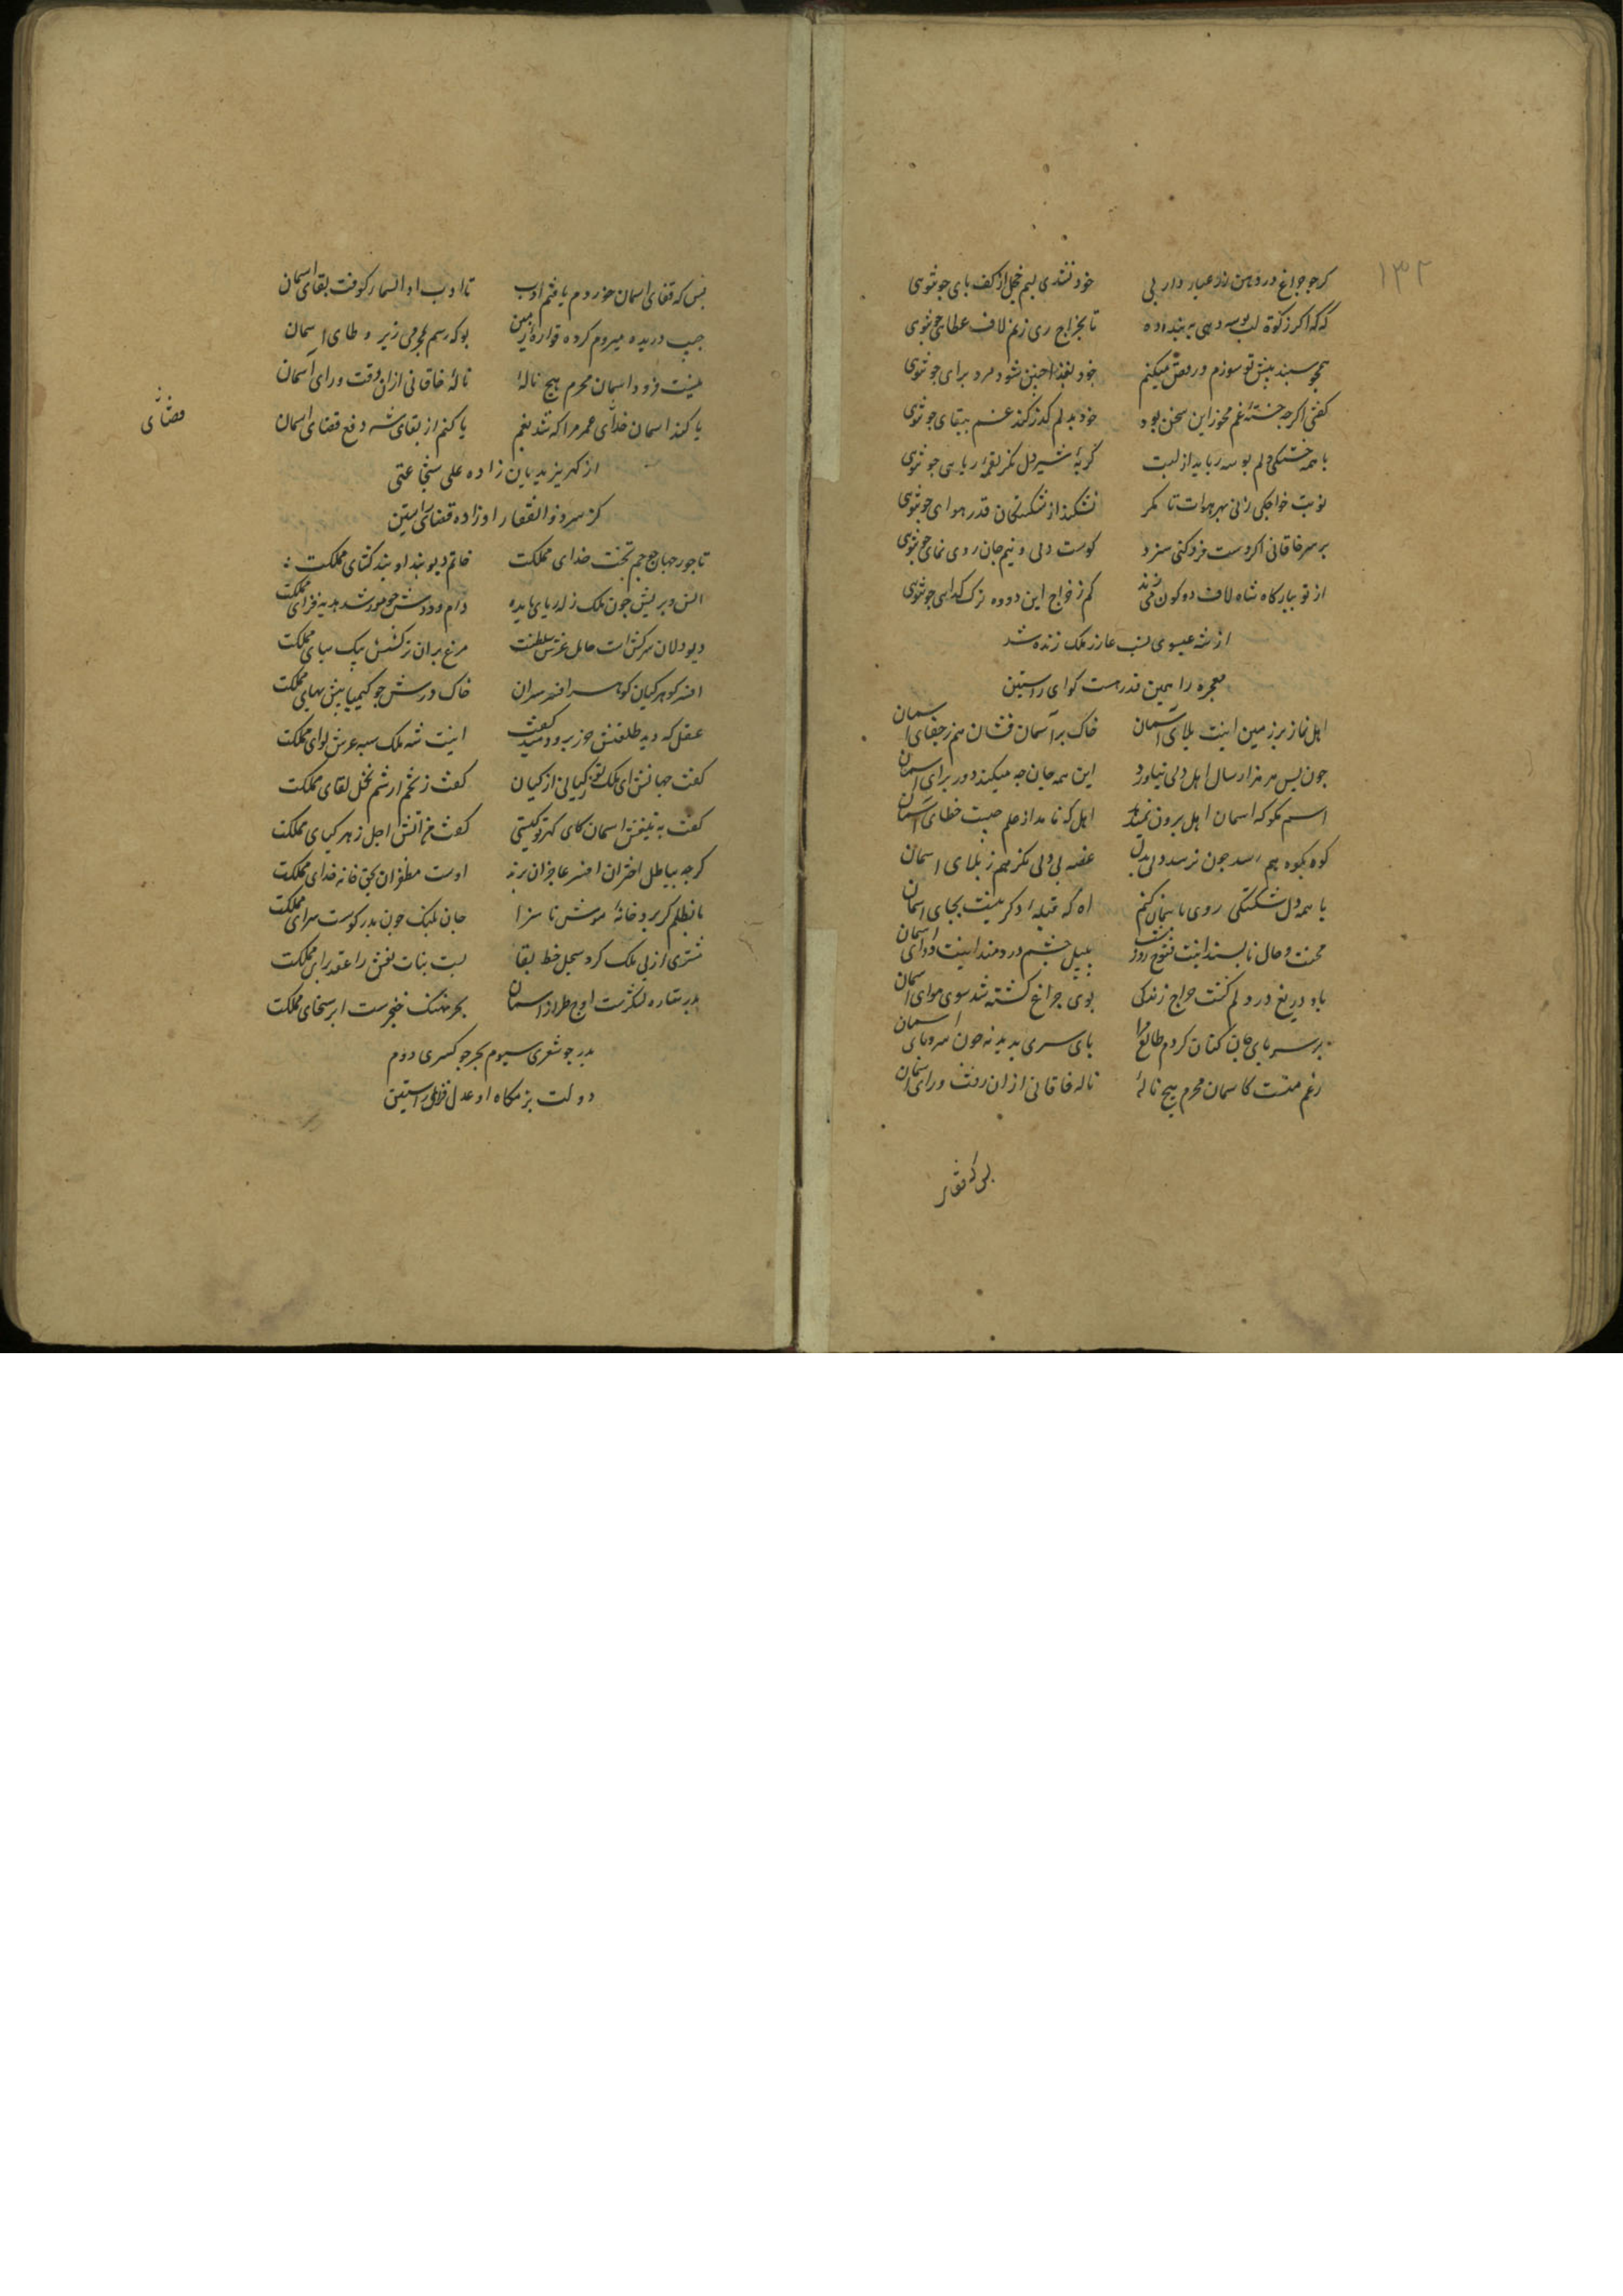 ۱۳۲
کر جو چراغ در دهن زر عیار دار بی خود نشدی لبم خجل از کف بای جو توبی
که که اکر زکوة لب بوسه دهی به بنده ده تا بخراج ری زنم لاف عطای جو توبی
همجو سبند بیش تو سوزم و رقص میکنم خود بفدا جنین شود مرد برای جو توبی
کفتی اکرجه خستهٔ غم مخور این سخن بود خود بدلم کذر کند غم ببقای جو توبی
با همه خستکی دلم بوسه رباید از لبت کربهٔ شیردل نکر لقمه ربای جو توبی
نوبت خواجکی زنی بهر هوات تا مکر نشکند از شکستکان قدر هوای جو توبی
بر سر خاقانی اکر دست فرو کنی سزد کوست دلی و نیم جان روی نمای جو توبی
از تو ببارکاه شاه لاف دو کون می‌زند کم ز خراج این دو ده نزل کدای جو توبی
از شه عیسوی نسب عازر ملک زنده شد
معجزه را همین قدر هست کوای راستین
اهل نماند بر زمین اینت بلای آسمان خاک بر آسمان فشان هم ز جفای آسمان
جون بس هر هزار سال اهل دلی نیاورد این همه جان جه میکند دور برای اسمان
اسم مکو که اسمان اهل برون نمیدهد اهل که نامد از عدم جیست خطای آسمان
کوه بکوه هم رسد جون نرسد دلی بدل غصه بی دلی نکر هم ز بلای اسمان
با همه دل شکستکی روی باسمان کنم اه که قبلهٔ دکر نیست بجای اسمان
محنت و حال نابسند اینت فتوح روز و شب بلبل جشم دردمند اینت دوای اسمان
باد دریغ در دلم کشت جراغ زندکی بوی جراغ کشته شد سوی هوای اسمان
بر سر بای جان کنان کردم طالع مرا بای سری بدید نه جون سروبای اسمان
رغم منست کاسمان محرم هیج نالهٔ ناله خاقانی از ان رفت ورای اسمان
بس که قفای
بس که قفای اسمان خوردم یافتم ادب تا ادب او السماء کوفت بقای اسمان
جیب دریده میروم کرده قواره زمین بو که رسم بمحرمی زیر وطای اسمان
نیست فرود اسمان محرم هیج نالهٔ نالهٔ خاقانی ازان رفت ورای آسمان
یا کند اسمان خدای عمر مرا که شد بغم یا کنم از بقای شه دفع قضای اسمان
از کهر یزیدیان زاده علی شجاعتی
کز سر ذوالفقار او زاده قضای راستین
قضای
تاجور جهان جو جم تخت خدای مملکت خاتم دیو بند او بند کشای مملکت
دیودلان سرکشش حامل عرش سلطنت مرغ بران ترکشش بیک سبای مملکت
افسر کوهر کیان کوهر افسر سران خاک درش جو کیمیا بیش بهای مملکت
عقل که دید طلعتش حرز برو دمید و کفت اینت شه ملک سبه عرش لوای مملکت
کفت جهانش ای ملک تو ز کیانی از کیان کفت ز تخم ارشم نخل لقای مملکت
کفت به تیغش اسمان کای کهر تو کیستی کفت من آتش اجل زهر کیای مملکت
کرجه بباطل اختران افسر عاجزان برند اوست مظفری بحق خانه خدای مملکت
بانظلم کربود خانهٔ موش ناسزا جان بلنک جون بدر کوست سرای مملکت
مشتری از بی ملک کرد سجل خط بقا بست بنات نعش را عقد برای مملکت
بدر ستاره لشکرست اوج طراز اسمان بحر نهنک خنجرست ابر سخای مملکت
بدر جو شعری سیوم بحر جو کسری دوم
دولت بزمکاه او عدل فزای راستین